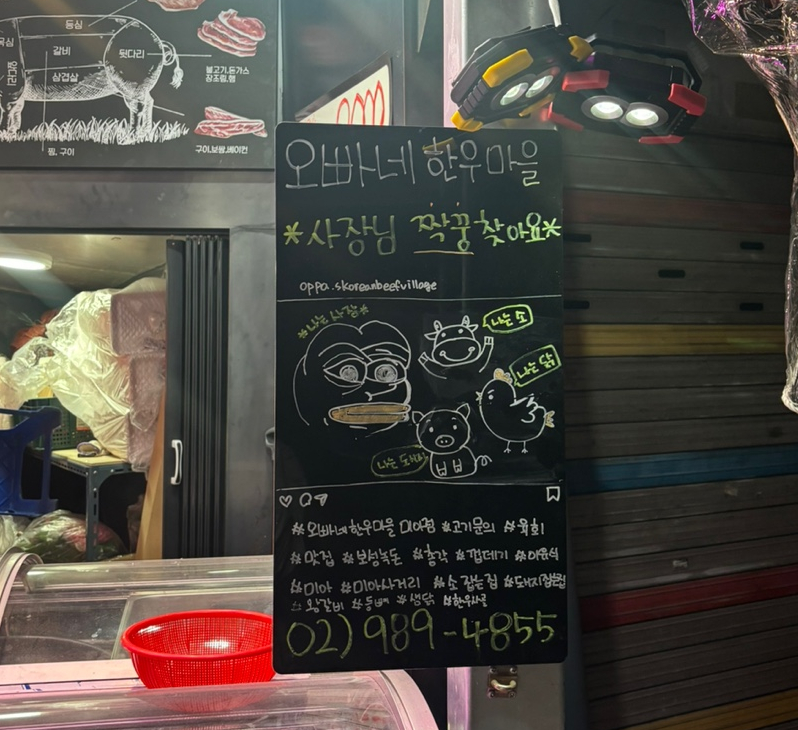 등심
목심
갈비
뒷다리
앞다리
삼겹살
불고기,돈가스
장조림,햄
찜, 구이
구이,보쌈,베이컨
오빠네 한우마을
*사장님 짝꿍 찾아요*
oppa.skoreanbeefvillage
*나는 사장*
나는 소
나는 닭
나는 돼지
#오빠네한우마을 미아점 #고기문의 #육회
#맛집 #보성녹돈 #총각 #껍데기 #이유식
#미아 #미아사거리 #소 잡는 집 #돼지잡는집
#왕갈비 #등뼈 #생닭 #한우사골
02) 989-4855